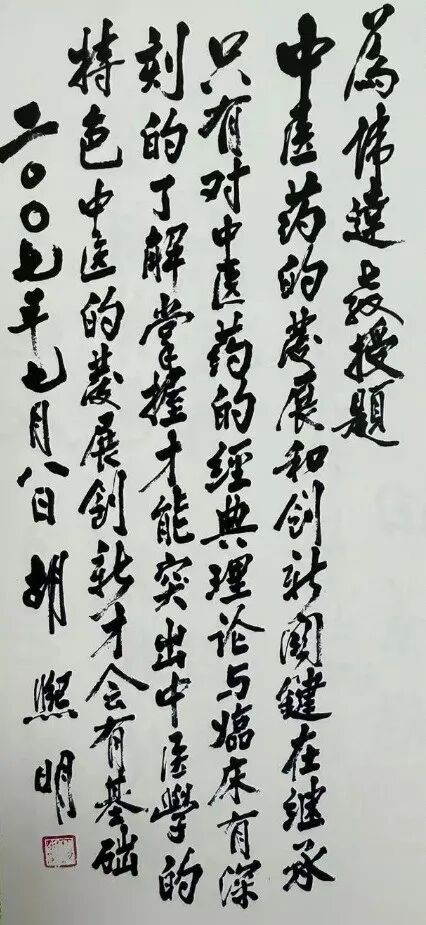 為偉達教授題
中医药的發展和创新関鍵在继承
只有对中医药的經典理论与临床有深
刻的了解掌握才能突出中医學的
特色中医的發展创新才会有基础
二〇〇七年七月八日 胡熙明